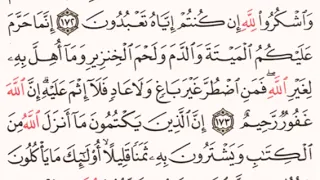 وَٱشْكُرُوا۟ لِلَّهِ إِن كُنتُمْ إِيَّاهُ تَعْبُدُونَ ١٧٢ إِنَّمَا حَرَّمَ
عَلَيْكُمُ ٱلْمَيْتَةَ وَٱلدَّمَ وَلَحْمَ ٱلْخِنزِيرِ وَمَآ أُهِلَّ بِهِۦ
لِغَيْرِ ٱللَّهِ ۖ فَمَنِ ٱضْطُرَّ غَيْرَ بَاغٍ وَلَا عَادٍ فَلَآ إِثْمَ عَلَيْهِ ۚ إِنَّ ٱللَّهَ
غَفُورٌ رَّحِيمٌ ١٧٣ إِنَّ ٱلَّذِينَ يَكْتُمُونَ مَآ أَنزَلَ ٱللَّهُ مِنَ
ٱلْكِتَٰبِ وَيَشْتَرُونَ بِهِۦ ثَمَنًا قَلِيلًا ۙ أُو۟لَٰٓئِكَ مَا يَأْكُلُونَ